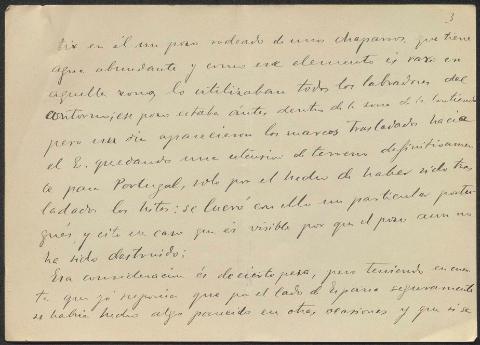 3
tir en él un pozo rodeado de unos chaparros, que tiene
agua abundante y como ese elemento es raro en
aquella zona lo utilizaban todos los labradores del
contorno, pues estaba ántes dentro de la zona de la contienda
pero un dia aparecieron los marcos trasladados hacia
el E. quedando una extension de terreno definitivamen
te para Portugal, solo por el hecho de haber sido tras
ladados los hitos: se lucró con ello un particular portu-
gués y este es caso que es visible por que el pozo aun no
ha sido destruido;
Esa consideración és de cierto peso, pero teniendo en cuen
ta que yá suponia que por el lado de España seguramente
se habia hecho algo parecido en otras ocasiones y que si se